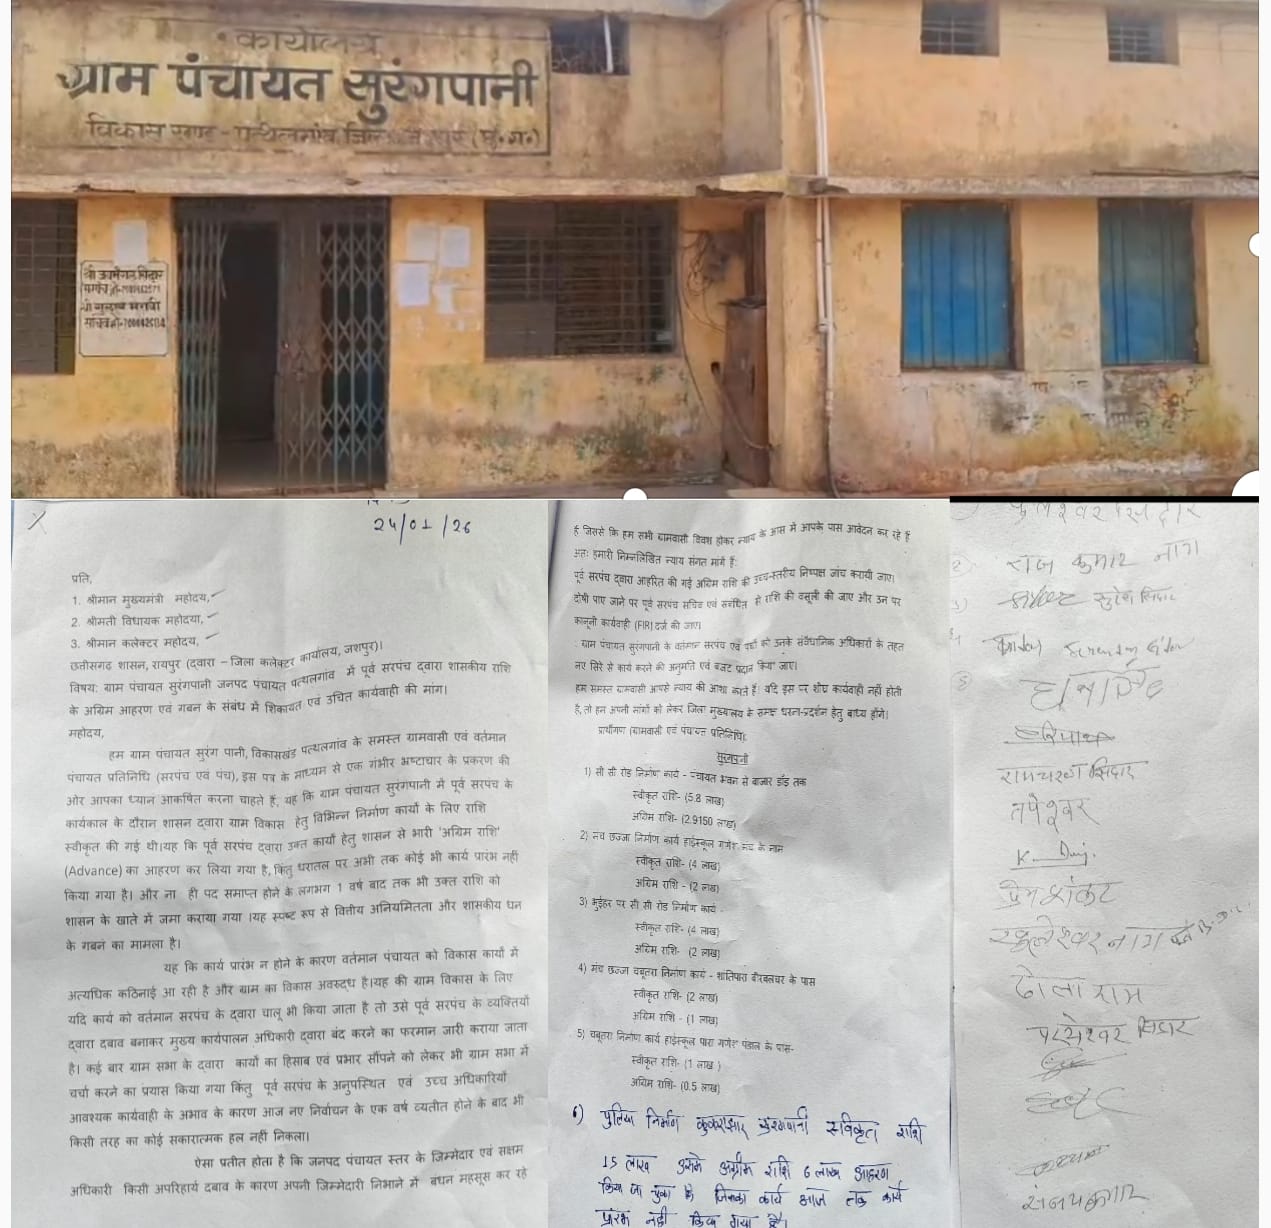 कार्यालय
ग्राम पंचायत सुरंगपानी
विकास खण्ड - पत्थलगांव जिला (छ.ग.)
श्री
सरपंच
श्री
सचिव
24/01/26
प्रति,
1. श्रीमान मुख्यमंत्री महोदय,
2. श्रीमती विधायक महोदया,
3. श्रीमान कलेक्टर महोदय,
छत्तीसगढ शासन, रायपुर (द्वारा – जिला कलेक्टर कार्यालय, जशपुर)।
विषय: ग्राम पंचायत सुरंगपानी जनपद पंचायत पत्थलगांव में पूर्व सरपंच द्वारा शासकीय राशि
के अग्रिम आहरण एवं गबन के संबंध में शिकायत एवं उचित कार्यवाही की मांग।
महोदय,
हम ग्राम पंचायत सुरंग पानी, विकासखंड पत्थलगांव के समस्त ग्रामवासी एवं वर्तमान
पंचायत प्रतिनिधि (सरपंच एवं पंच), इस पत्र के माध्यम से एक गंभीर भ्रष्टाचार के प्रकरण की
ओर आपका ध्यान आकर्षित करना चाहते हैं, यह कि ग्राम पंचायत सुरंगपानी में पूर्व सरपंच के
कार्यकाल के दौरान शासन द्वारा ग्राम विकास हेतु विभिन्न निर्माण कार्यों के लिए राशि
स्वीकृत की गई थी।यह कि पूर्व सरपंच द्वारा उक्त कार्यों हेतु शासन से भारी 'अग्रिम राशि'
(Advance) का आहरण कर लिया गया है, किंतु धरातल पर अभी तक कोई भी कार्य प्रारंभ नहीं
किया गया है। और ना ही पद समाप्त होने के लगभग 1 वर्ष बाद तक भी उक्त राशि को
शासन के खाते में जमा कराया गया ।यह स्पष्ट रूप से वित्तीय अनियमितता और शासकीय धन
के गबन का मामला है।
यह कि कार्य प्रारंभ न होने के कारण वर्तमान पंचायत को विकास कार्यों में
अत्यधिक कठिनाई आ रही है और ग्राम का विकास अवरुद्ध है।यह की ग्राम विकास के लिए
यदि कार्य को वर्तमान सरपंच के द्वारा चालू भी किया जाता है तो उसे पूर्व सरपंच के व्यक्तियों
द्वारा दबाव बनाकर मुख्य कार्यपालन अधिकारी द्वारा बंद करने का फरमान जारी कराया जाता
है। कई बार ग्राम सभा के द्वारा कार्यों का हिसाब एवं प्रभार सौंपने को लेकर भी ग्राम सभा में
चर्चा करने का प्रयास किया गया किंतु पूर्व सरपंच के अनुपस्थित एवं उच्च अधिकारियों
आवश्यक कार्यवाही के अभाव के कारण आज नए निर्वाचन के एक वर्ष व्यतीत होने के बाद भी
किसी तरह का कोई सकारात्मक हल नहीं निकला।
ऐसा प्रतीत होता है कि जनपद पंचायत स्तर के जिम्मेदार एवं सक्षम
अधिकारी किसी अपरिहार्य दबाव के कारण अपनी जिम्मेदारी निभाने में बंधन महसूस कर रहे
है जिससे कि हम सभी ग्रामवासी विवश होकर न्याय के आस में आपके पास आवेदन कर रहे हैं
अतः हमारी निम्नलिखित न्याय संगत मांगें हैं:
पूर्व सरपंच द्वारा आहरित की गई अग्रिम राशि की उच्च-स्तरीय निष्पक्ष जांच करायी जाए।
दोषी पाए जाने पर पूर्व सरपंच सचिव एवं संबंधित से राशि की वसूली की जाए और उन पर
कानूनी कार्यवाही (FIR) दर्ज की जाए।
. ग्राम पंचायत सुरंगपानी के वर्तमान सरपंच एवं पंचों को उनके संवैधानिक अधिकारों के तहत
नए सिरे से कार्य करने की अनुमति एवं बजट प्रदान किया जाए।
हम समस्त ग्रामवासी आपसे न्याय की आशा करते हैं। यदि इस पर शीघ्र कार्यवाही नहीं होती
है, तो हम अपनी मांगों को लेकर जिला मुख्यालय के समक्ष धरना-प्रदर्शन हेतु बाध्य होंगे।
प्रार्थीगण (ग्रामवासी एवं पंचायत प्रतिनिधि):
सुरंगपानी
1) सी सी रोड निर्माण कार्य - पंचायत भवन से बाजार डाँड तक
स्वीकृत राशि- (5.8 लाख)
अग्रिम राशि- (2.9150 लाख)
2) मंच छज्जा निर्माण कार्य हाईस्कूल गणेश मंच के नाम
स्वीकृत राशि- (4 लाख)
अग्रिम राशि - (2 लाख)
3) भुईहर पर सी सी रोड निर्माण कार्य -
स्वीकृत राशि- (4 लाख)
अग्रिम राशि- (2 लाख)
4) मंच छज्जा चबूतरा निर्माण कार्य - शांतिपारा बीरबलघर के पास
स्वीकृत राशि- (2 लाख)
अग्रिम राशि - (1 लाख)
5) चबूतरा निर्माण कार्य हाईस्कूल पारा गणेश पंडाल के पास-
स्वीकृत राशि- (1 लाख )
अग्रिम राशि- (0.5 लाख)
6) पुलिया निर्माण कुकराझार सुरंगपानी स्वीकृत राशि
15 लाख उसमे अग्रीम राशि 6 लाख आहरण
किया जा चुका है जिसका कार्य आज तक कार्य
प्रारंभ नहीं किया गया है।
2) राज कुमार नाग
3) सुरेश सिदार
4)
5)
हरिपाथ
रामचरण सिदार
तपेश्वर
प्रेम शंकर
ढोला राम
परमेश्वर सिदार
संजय कुमार